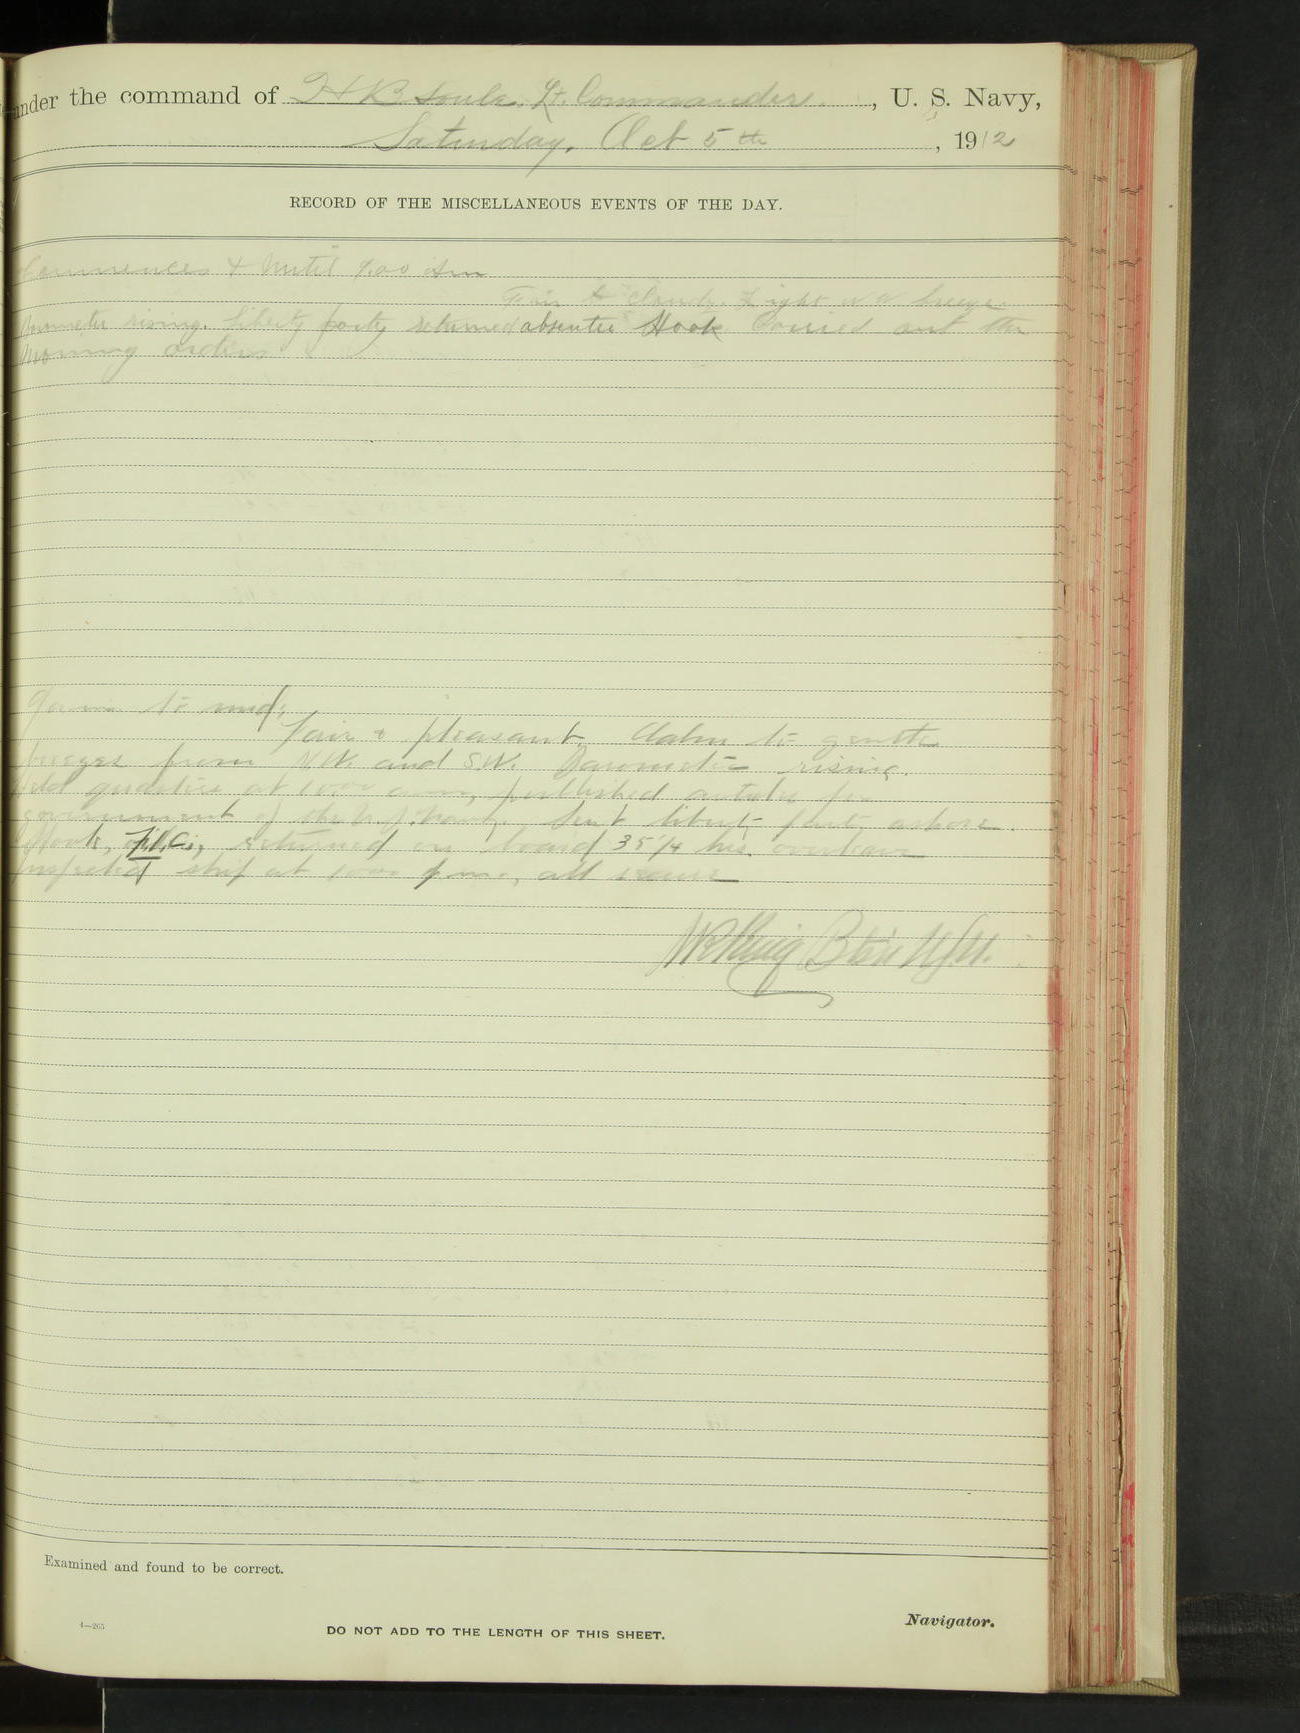 under the command of H B Soule, Lt. Commander, U. S. Navy,
Saturday, Oct 5th, 1912
RECORD OF THE MISCELLANEOUS EVENTS OF THE DAY.
Commences & Until 9.00 Am
Fair to Cloudy. Light N W breeze.
Barometer rising. Liberty party returned absentee Hook Carried out the
Morning orders
9 a.m. to mid:
Fair & pleasant. Calm to gentle
breezes from N.W. and S.W. Barometer rising.
Held quarters at 1000 a.m., published articles for
government of the U.S. Navy. Sent liberty party ashore.
Hook, returned on board 35 1/4 hrs. overleave
Inspected ship at 1000 p.m., all secure
Btsn USN.
Examined and found to be correct.
Navigator.
4—265
DO NOT ADD TO THE LENGTH OF THIS SHEET.